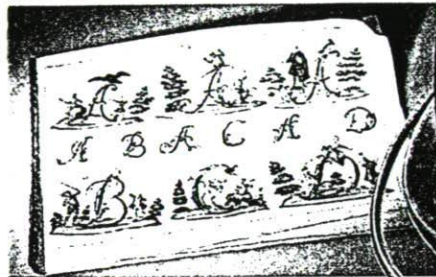 A A A
A B A C A D
B C D